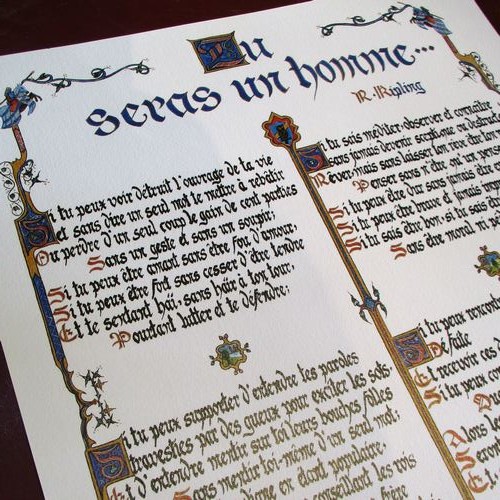 Tu
seras un homme...
R. Kipling
Si tu peux voir détruit l'ouvrage de ta vie
Et sans dire un seul mot te mettre à rebâtir
Ou perdre d'un seul coup le gain de cent parties
Sans un geste et sans un soupir;
Si tu peux être amant sans être fou d'amour,
Si tu peux être fort sans cesser d'être tendre
Et te sentant haï, sans haïr à ton tour,
Pourtant lutter et te défendre;
Si tu peux supporter d'entendre tes paroles
Travesties par des gueux pour exciter les sots,
Et d'entendre mentir sur toi leurs bouches folles
Sans mentir toi-même d'un seul mot;
digne en étant populaire,
conseillant les rois
Si tu sais méditer, observer et connaître
Sans jamais devenir sceptique ou destructeur
Rêver, mais sans laisser ton rêve être ton
Penser sans n'être qu'un penseur
Si tu peux être dur sans jamais être
Si tu peux être brave et jamais
Si tu sais être bon, si tu sais
Sans être moral ni
Si tu peux rencontrer
Défaite
Et recevoir ces
Si tu peux
Alors